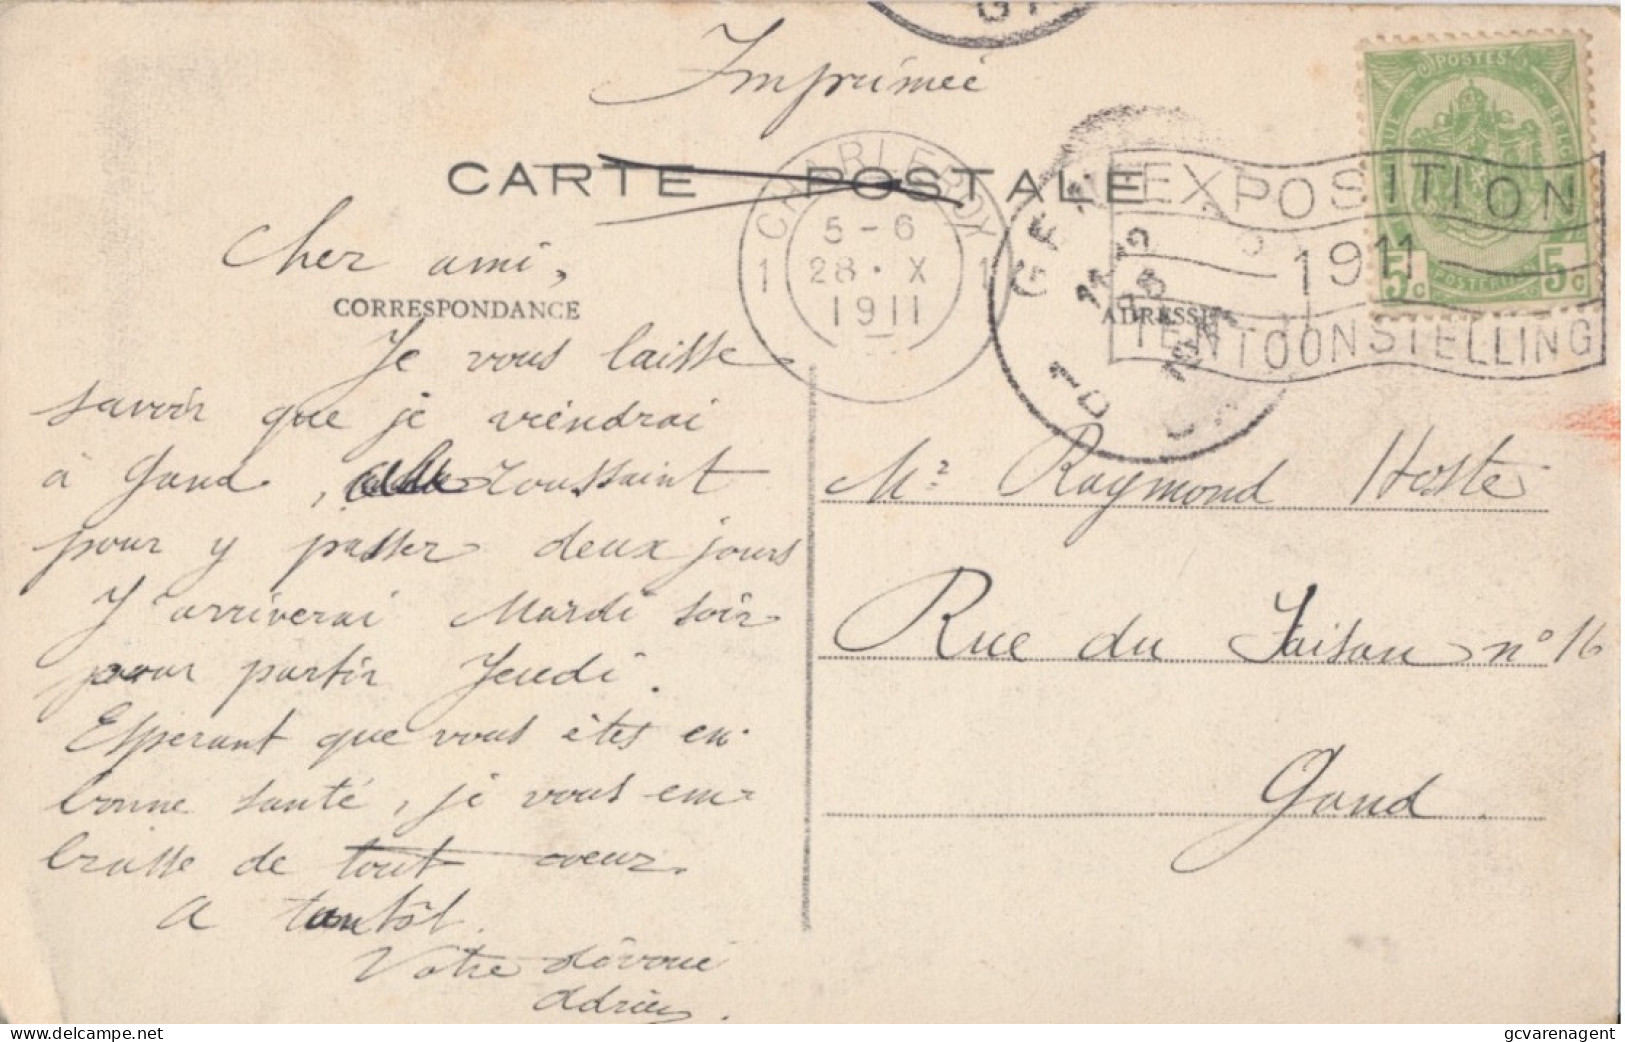 Imprimeé
CARTE POSTALE
CHARLEROY
5-6
28·X
1911
1 1
GENT
EXPOSITION
1911
TENTOONSTELLING
POSTES
5c 5c
POSTERIJEN
CORRESPONDANCE
ADRESSE
Cher ami,
Je vous laisse
savoir que je viendrai
à Gand, Toussaint
pour y passer deux jours
J'arriverai Mardi soir
pour partir Jeudi.
Esperant que vous êtes en
bonne santé, je vous em-
brasse de tout coeur.
A tantôt.
Votre dévoué
Adrien.
Mr Raymond Hoste
Rue du Faisan n° 16
Gand.
delcampe.net
gcvarenagent